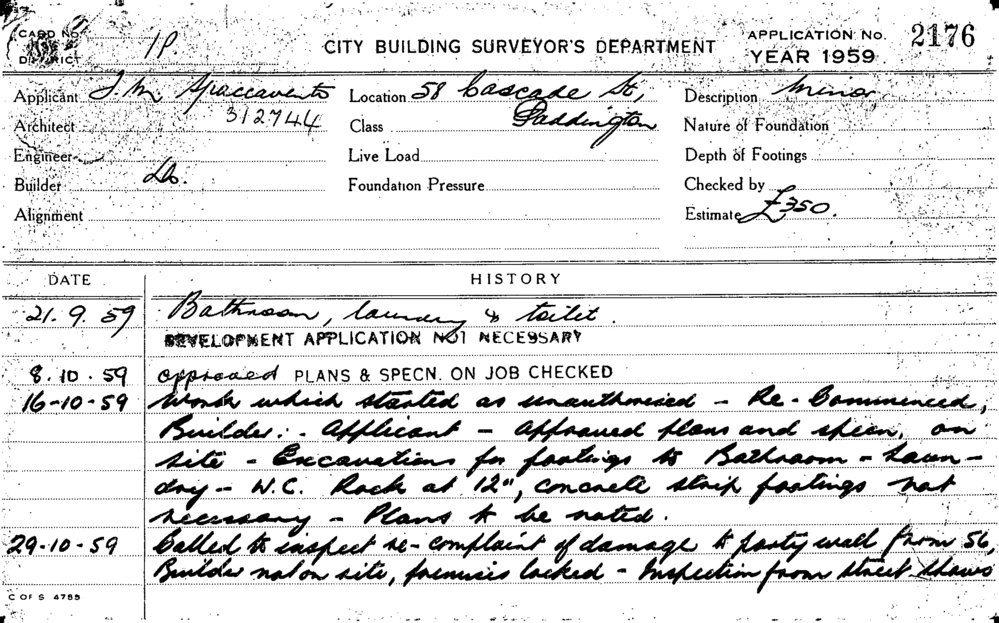 CARD No.
DISTRICT
1P.
CITY BUILDING SURVEYOR'S DEPARTMENT
APPLICATION No. 2176
YEAR 1959
Applicant J. M. Spaccavento Location 58 Cascade St, Description Minor
Architect 312744 Class Paddington Nature of Foundation
Engineer Live Load Depth of Footings
Builder Do. Foundation Pressure Checked by
Alignment Estimate £350.
DATE HISTORY
21. 9. 59 Bathroom, laundry & toilet.
DEVELOPMENT APPLICATION NOT NECESSARY
8. 10. 59 approved PLANS & SPECN. ON JOB CHECKED
16-10-59 Work which started as unauthorised - Re-Commenced,
Builder:- Applicant - Approved plans and specn. on
site - Excavations for footings to Bathroom - Laun-
dry - W.C. Rock at 12", concrete strip footings not
necessary - Plans to be noted.
29-10-59 Called to inspect re-complaint of damage to party wall from 56,
Builder not on site, premises locked - Inspection from street shows
C OF S 4785